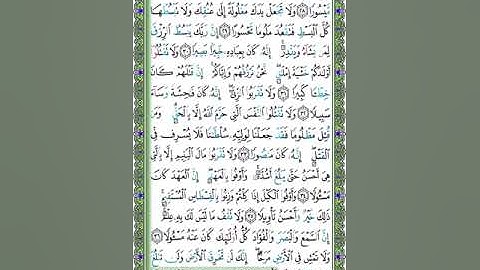 مَّيْسُورًا ﴿٢٨﴾ وَلَا تَجْعَلْ يَدَكَ مَغْلُولَةً إِلَىٰ عُنُقِكَ وَلَا تَبْسُطْهَا
كُلَّ الْبَسْطِ فَتَقْعُدَ مَلُومًا مَّحْسُورًا ﴿٢٩﴾ إِنَّ رَبَّكَ يَبْسُطُ الرِّزْقَ
لِمَن يَشَاءُ وَيَقْدِرُ ۚ إِنَّهُ كَانَ بِعِبَادِهِ خَبِيرًا بَصِيرًا ﴿٣٠﴾ وَلَا تَقْتُلُوا
أَوْلَادَكُمْ خَشْيَةَ إِمْلَاقٍ ۖ نَّحْنُ نَرْزُقُهُمْ وَإِيَّاكُمْ ۚ إِنَّ قَتْلَهُمْ كَانَ
خِطْئًا كَبِيرًا ﴿٣١﴾ وَلَا تَقْرَبُوا الزِّنَىٰ ۖ إِنَّهُ كَانَ فَاحِشَةً وَسَاءَ
سَبِيلًا ﴿٣٢﴾ وَلَا تَقْتُلُوا النَّفْسَ الَّتِي حَرَّمَ اللَّهُ إِلَّا بِالْحَقِّ ۗ وَمَن
قُتِلَ مَظْلُومًا فَقَدْ جَعَلْنَا لِوَلِيِّهِ سُلْطَانًا فَلَا يُسْرِف فِّي
الْقَتْلِ ۖ إِنَّهُ كَانَ مَنصُورًا ﴿٣٣﴾ وَلَا تَقْرَبُوا مَالَ الْيَتِيمِ إِلَّا بِالَّتِي
هِيَ أَحْسَنُ حَتَّىٰ يَبْلُغَ أَشُدَّهُ ۚ وَأَوْفُوا بِالْعَهْدِ ۖ إِنَّ الْعَهْدَ كَانَ
مَسْئُولًا ﴿٣٤﴾ وَأَوْفُوا الْكَيْلَ إِذَا كِلْتُمْ وَزِنُوا بِالْقِسْطَاسِ الْمُسْتَقِيمِ ۚ
ذَٰلِكَ خَيْرٌ وَأَحْسَنُ تَأْوِيلًا ﴿٣٥﴾ وَلَا تَقْفُ مَا لَيْسَ لَكَ بِهِ عِلْمٌ ۚ
إِنَّ السَّمْعَ وَالْبَصَرَ وَالْفُؤَادَ كُلُّ أُولَٰئِكَ كَانَ عَنْهُ مَسْئُولًا ﴿٣٦﴾
وَلَا تَمْشِ فِي الْأَرْضِ مَرَحًا ۖ إِنَّكَ لَن تَخْرِقَ الْأَرْضَ وَلَن تَبْلُغَ